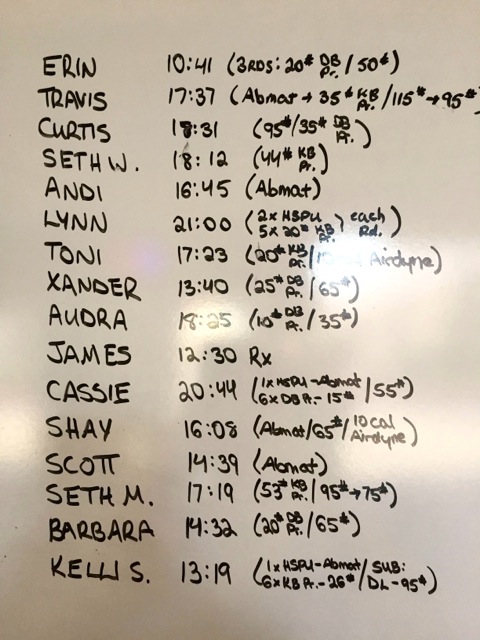 ERIN 10:41 (3RDS: 20# DB Pr. / 50#)
TRAVIS 17:37 (Abmat → 35# KB Pr. / 115# → 95#
CURTIS 18:31 (95# / 35# DB Pr.)
SETH W. 18:12 (44# KB Pr.)
ANDI 16:45 (Abmat)
LYNN 21:00 (2x HSPU 5x 20# KB Pr. } each Rd.)
TONI 17:23 (20# KB Pr. / Airdyne)
XANDER 13:40 (25# DB Pr. / 65#)
AUDRA 18:25 (10# DB Pr. / 35#)
JAMES 12:30 Rx
CASSIE 20:44 (1x HSPU-Abmat 6x DB Pr.-15# / 55#)
SHAY 16:08 (Abmat/65#/10 cal Airdyne)
SCOTT 14:39 (Abmat)
SETH M. 17:19 (53# KB Pr. / 95# → 75#)
BARBARA 14:32 (20# DB Pr. / 65#)
KELLI S. 13:19 (1x HSPU-Abmat 6x KB Pr.-26# / SUB: DL-95#)